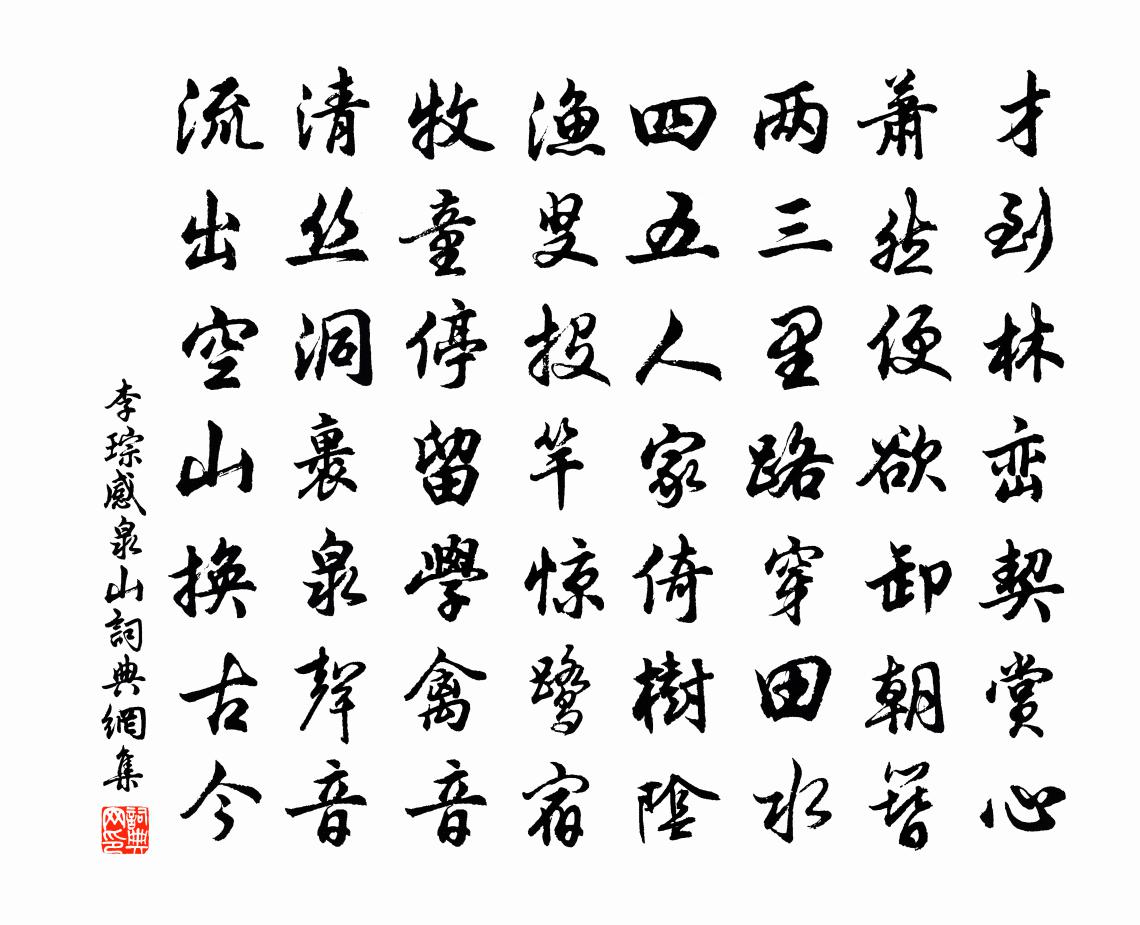 才到林峦契賞心
蕭然便欲卸朝簪
两三里路穿田水
四五人家倚樹陰
漁叟投竿惊鹭宿
牧童停留學禽音
清丝洞裏泉聲音
流出空山換古今
李琮感泉山詞典網集
詞典网印